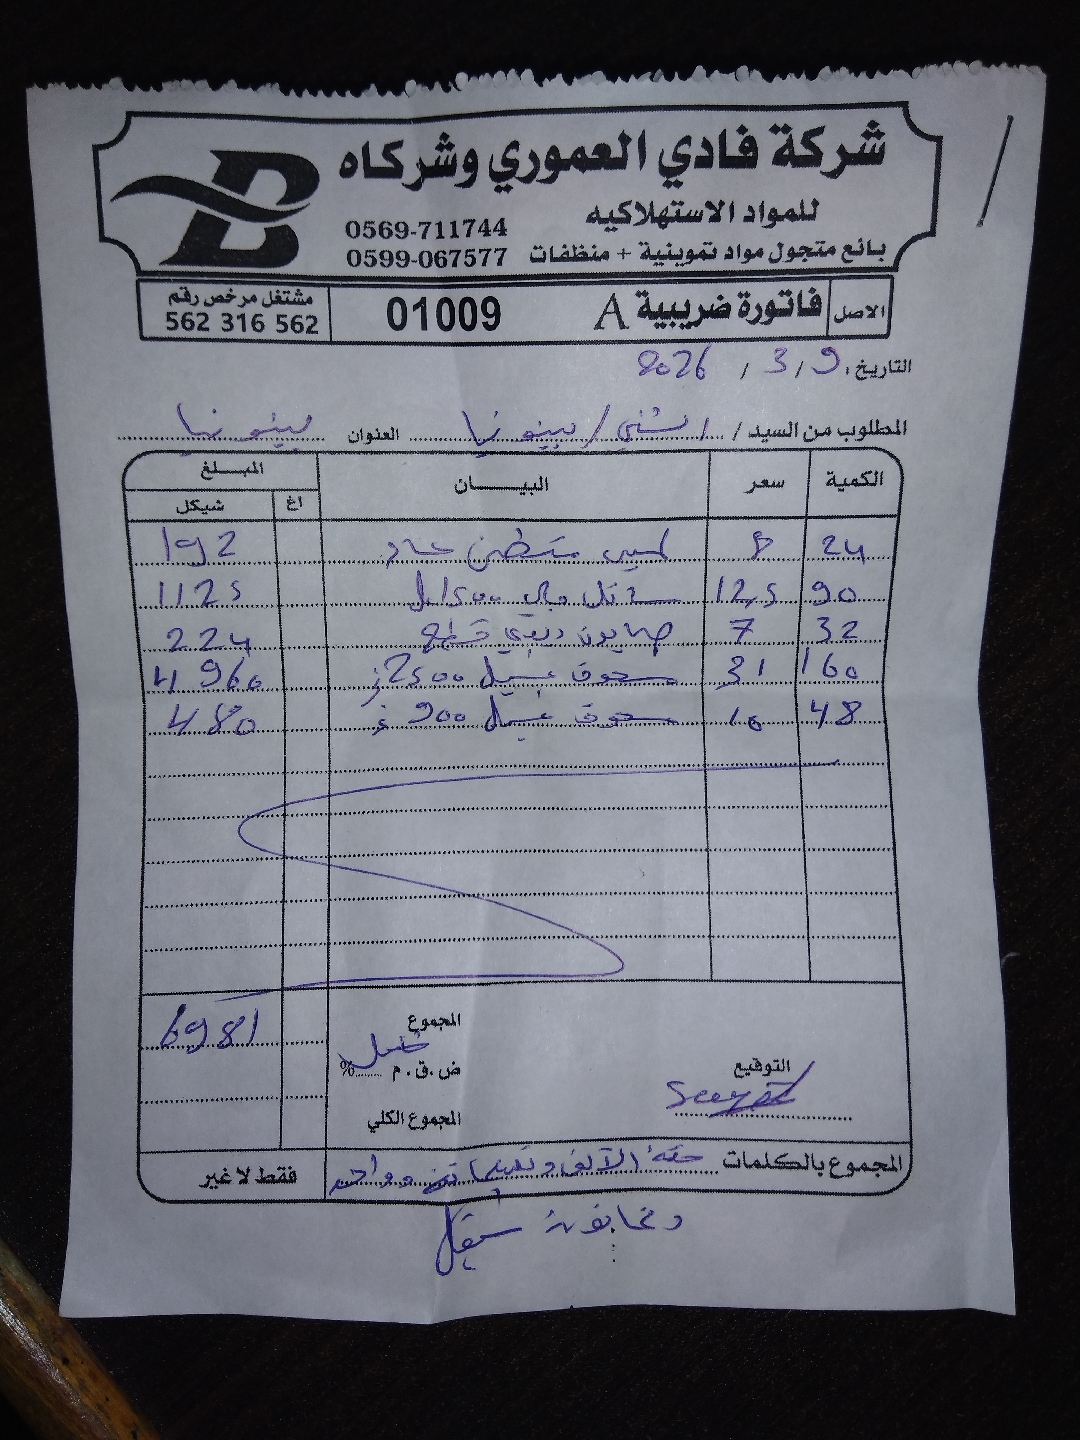 شركة فادي العموري وشركاه
للمواد الاستهلاكيه
0569-711744
بائع متجول مواد تموينية + منظفات 0599-067577
الاصل فاتورة ضريبية A 01009 مشتغل مرخص رقم
562 316 562
التاريخ: 9 / 3 / 2026
المطلوب من السيد / / العنوان
الكمية سعر البيـــان المبـــلغ
اغ شيكل
24 8 192
90 12,5 1500 1125
32 7 صابون 224
160 31 مسحوق غسيل 2500 غ 4960
48 10 مسحوق غسيل 900 غ 480
المجموع 6981
ض.ق.م %
التوقيع
المجموع الكلي
المجموع بالكلمات ستة الاف و وواحد فقط لا غير
وثمانون شيقل